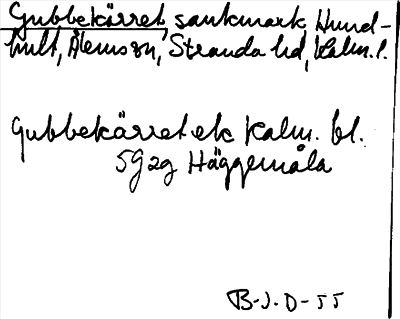 Gubbekärret, sankmark, Hund-
hult, Ålems sn, Stranda hd, Kalm. l.
Gubbekärret ek Kalm. bl.
5G2g Häggemåla
B-J.D-55